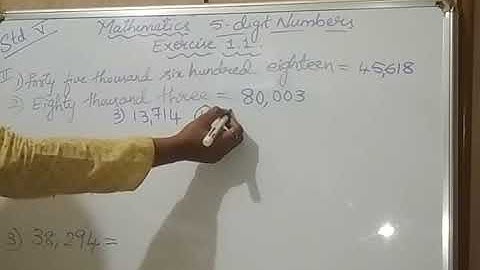 Std V
Mathematics 5-digit Numbers
Exercise 1.1
II 1) Forty five thousand six hundred eighteen = 45,618
2) Eighty thousand three = 80,003
3) 13,714
3) 38,294 =